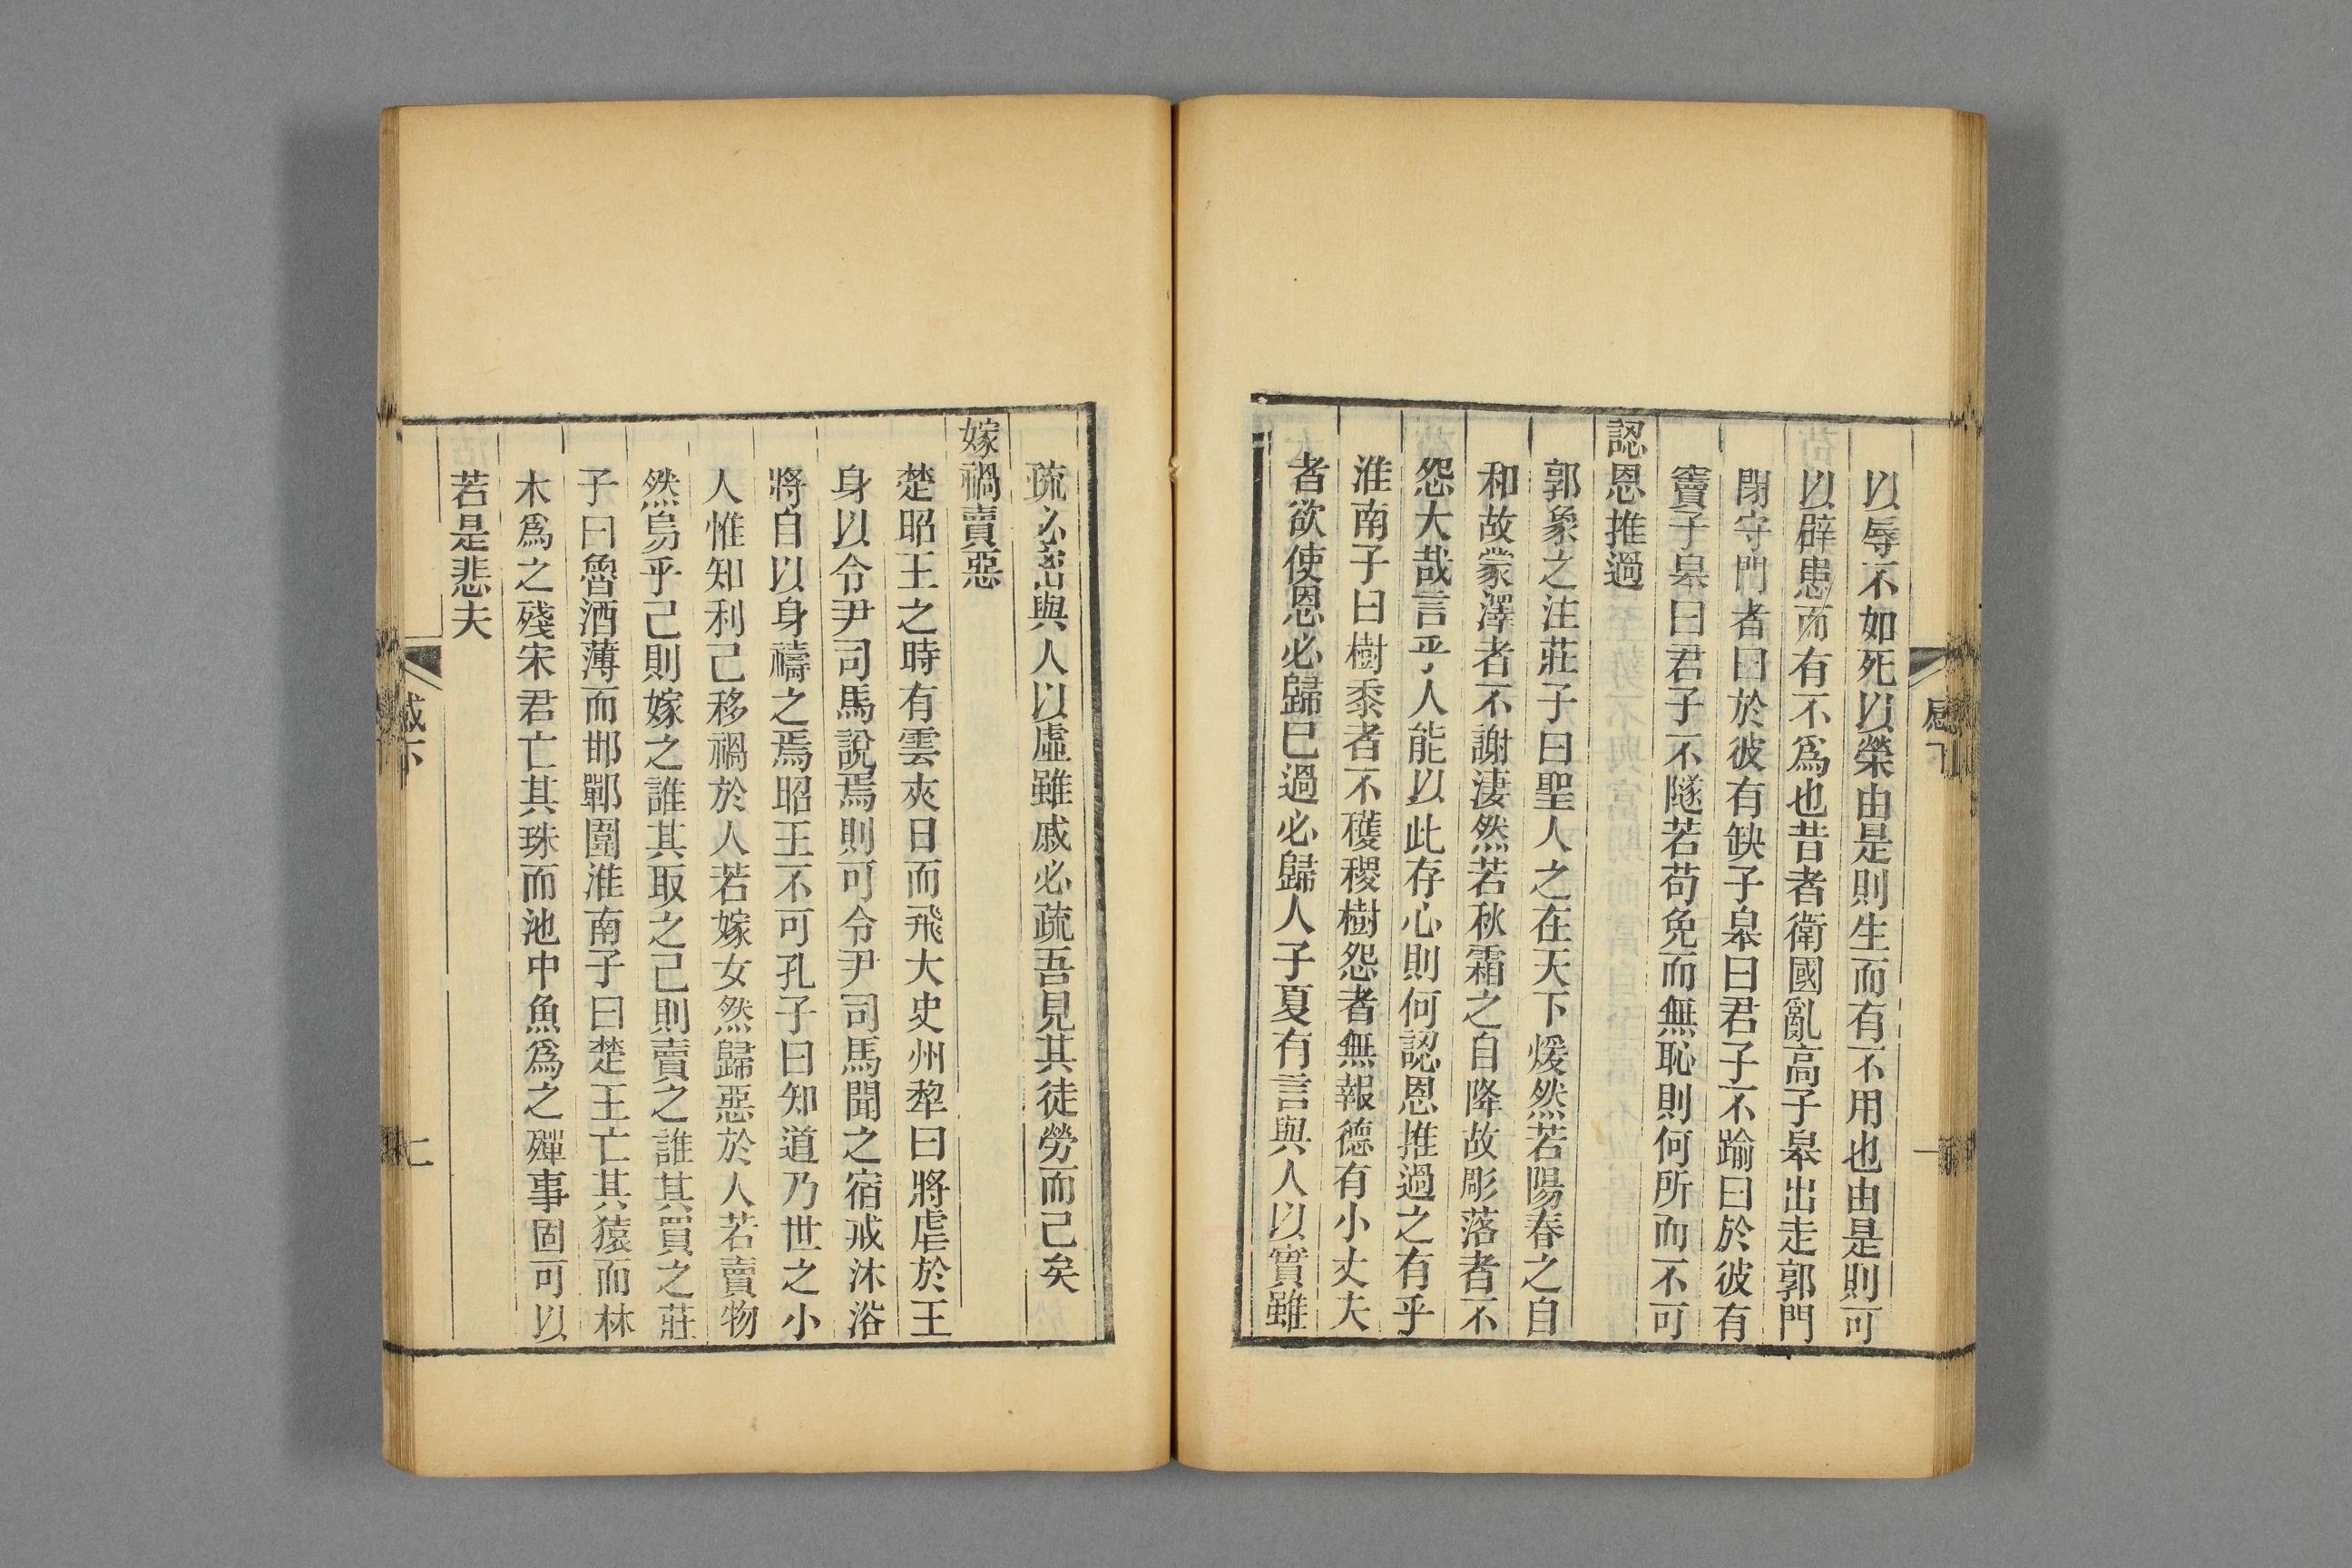 以辱不如死以榮由是則生而有不用也由是則可
以辟患而有不爲也昔者衛國亂高子皋出走郭門
閉守門者曰於彼有缺子皋曰君子不踰曰於彼有
竇子皋曰君子不隧若苟免而無恥則何所而不可
認恩推過
郭象之注莊子曰聖人之在天下煖然若陽春之自
和故蒙澤者不謝淒然若秋霜之自降故彫落者不
怨大哉言乎人能以此存心則何認恩推過之有乎
淮南子曰樹黍者不穫稷樹怨者無報德有小丈夫
者欲使恩必歸已過必歸人子夏有言與人以實雖
疏必密與人以虛雖戚必疏吾見其徒勞而己矣
嫁禍賣惡
楚昭王之時有雲夾日而飛大史州犂曰將虐於王
身以令尹司馬說焉則可令尹司馬聞之宿戒沐浴
將自以身禱之焉昭王不可孔子曰知道乃世之小
人惟知利己移禍於人若嫁女然歸惡於人若賣物
然烏乎己則嫁之誰其取之己則賣之誰其買之莊
子曰魯酒薄而邯鄲圍淮南子曰楚王亡其猿而林
木爲之殘宋君亡其珠而池中魚爲之殫事固可以
若是悲夫
下
七